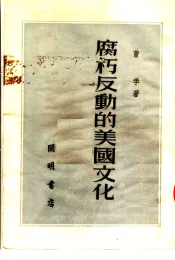 著
腐朽反動的美國文化
開明書店